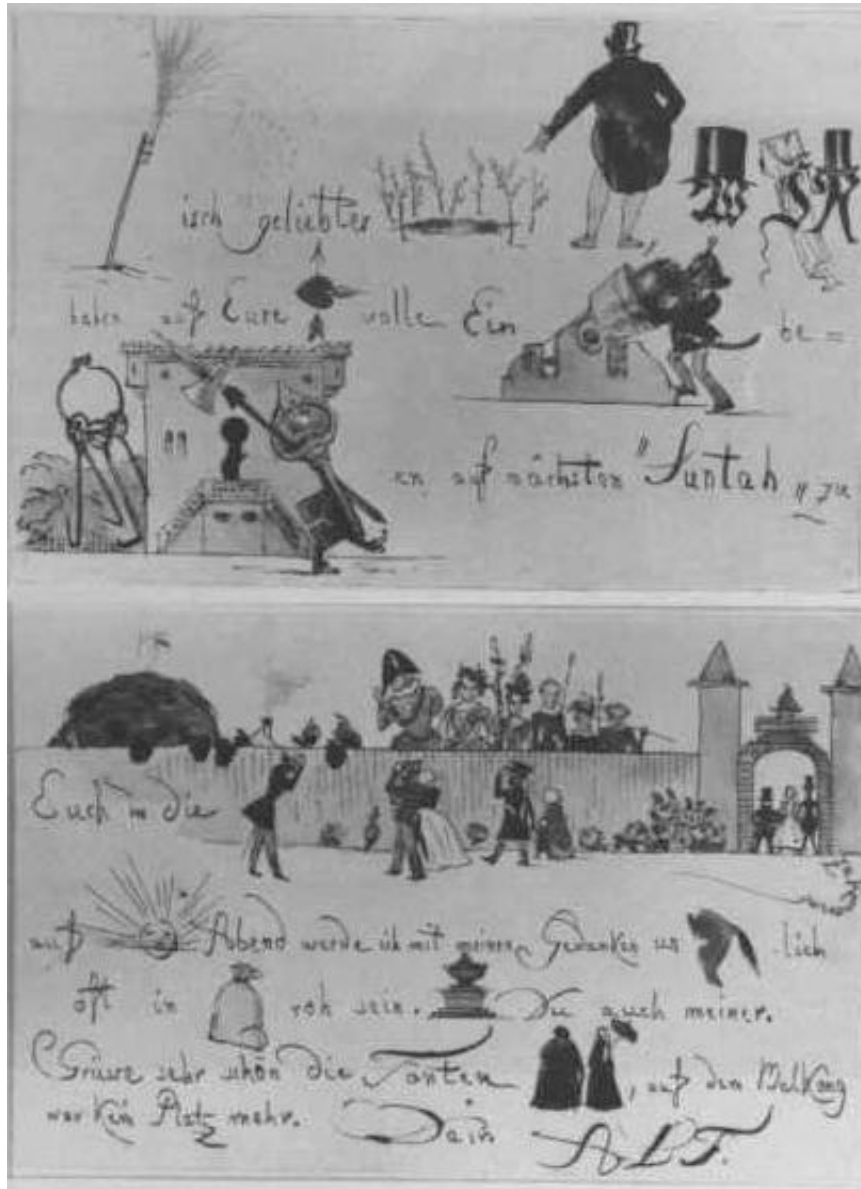 isch geliebter
haben auf Eure volle Ein be=
en auf nächsten "Suntah" zu
Euch in die
auf Abend werde ich mit meinen Gedanken un lich
oft in roh sein. Du auch meiner.
Grüsse sehr schön die Tanten , auf den Balkong
war kein Platz mehr. Dein
A L F.